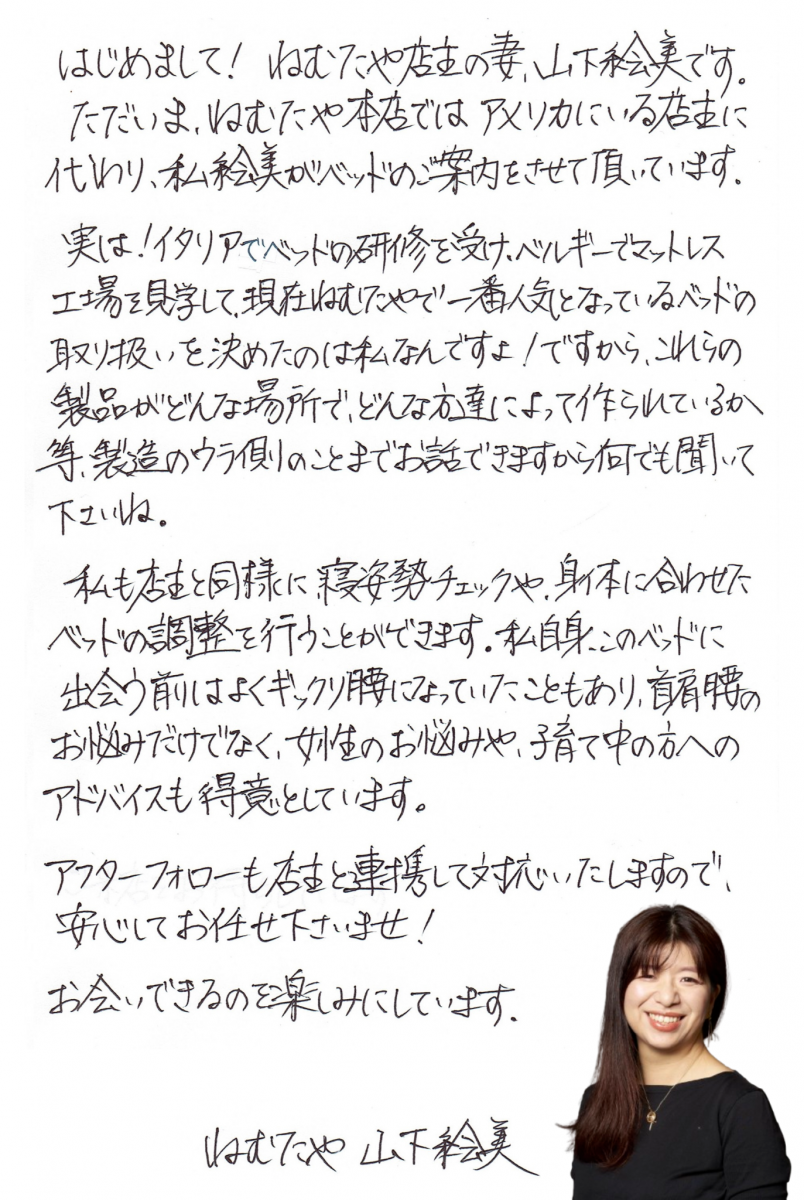 はじめまして！ ねむたや店主の妻、山下絵美です。
ただいま、ねむたや本店では アメリカにいる店主に
代わり、私絵美がベッドのご案内をさせて頂いています。
実は！イタリアでベッドの研修を受け、ベルギーでマットレス
工場を見学して、現在ねむたやで一番人気となっているベッドの
取り扱いを決めたのは私なんですよ！ですから、これらの
製品がどんな場所で、どんな方達によって作られているか
等、製造のウラ側のことまでお話できますから何でも聞いて
下さいね。
私も店主と同様に寝姿勢チェックや、身体に合わせた
ベッドの調整を行うことができます。私自身、このベッドに
出会う前はよくギックリ腰になっていたこともあり、首肩腰の
お悩みだけでなく、女性のお悩みや、子育て中の方への
アドバイスも得意としています。
アフターフォローも店主と連携して対応いたしますので、
安心してお任せ下さいませ！
お会いできるのを楽しみにしています。
ねむたや 山下絵美